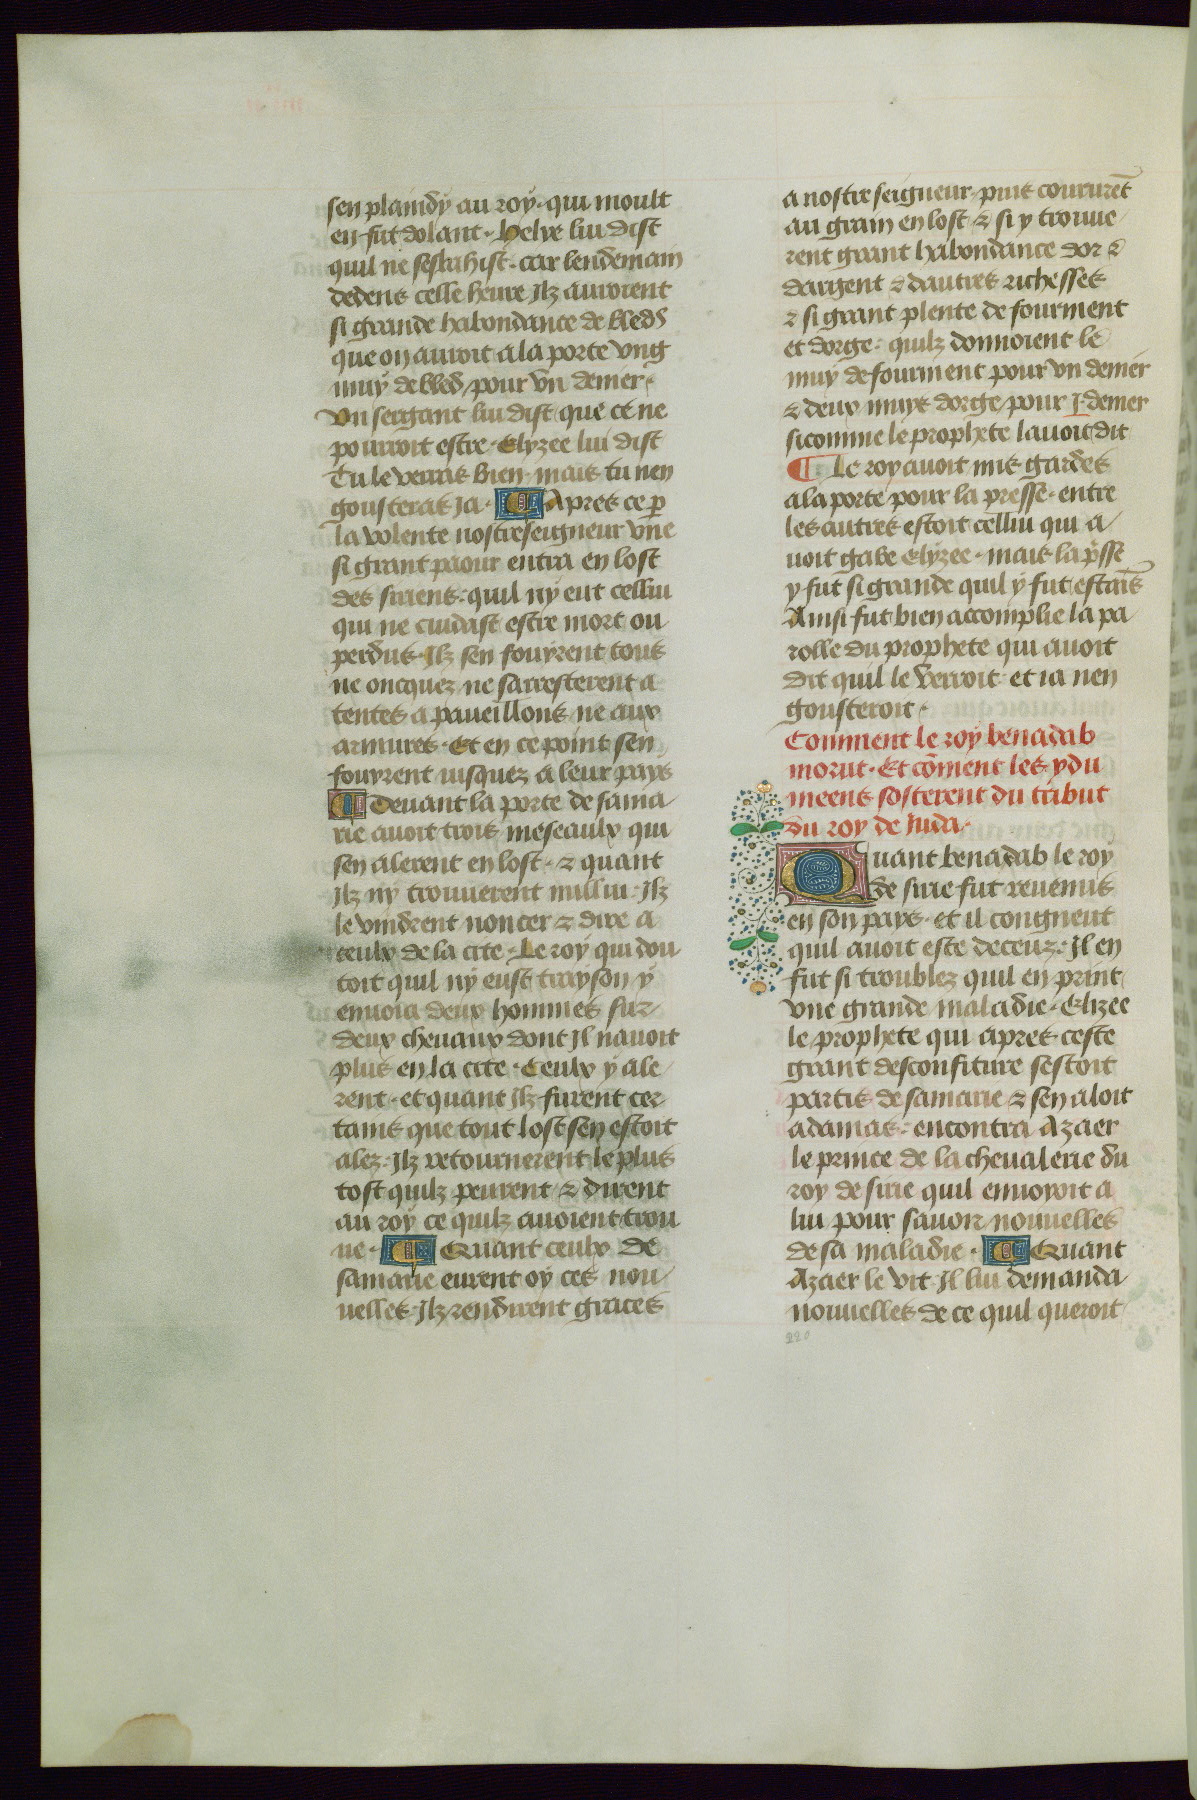 sen plaindy au roy. qui moult
en fut dolant. Helye lui dist
quil ne sesbahist. car lendemain
dedens celle heure Ilz auroient
si grande habondance de bleds
que on auroit a la porte vng
muy de bled pour vn denier.
vn sergant lui dist que ce ne
pourroit estre. Elyzee lui dist
Tu le verras bien. mais tu nen
gousteras ja. ¶ Apres ce p
la volente nostreseigneur vne
si grant paour entra en lost
des siriens. quil ny eut cellui
qui ne cuidast estre mort ou
perdus. Ilz sen fouyrent tous
ne oncquez ne sarresterent a
tentes a paueillons ne aux
armures. Et en ce point sen
fouyrent iusquez a leur pays
¶ Deuant la porte de sama/
rie auoit trois meseaulx qui
sen alerent en lost. & quant
Ilz ny trouuerent nulluı. Ilz
le vindrent noncer & dire a
ceulx de la cite. Le roy qui dou
toit quil ny eust trayson y
enuoia deux hommes sur/
deux cheuaux dont Il nauoit
plus en la cite. Ceulx y ale/
rent. et quant Ilz furent cer
tains que tout lost sen estoit
alez. Ilz retournerent le plus
tost quilz peurent & dirent
au roy ce quilz auoient trou
ue. ¶ Quant ceulx de
samarie eurent oy ces nou/
uelles. Ilz rendirent graces
a nostre seigneur. puis coururẽt
au grain en lost & si y trouue/
rent grant habondance dor &
dargent & dautres richesses
& si grant plente de fourment
et dorge. quilz donnoient le
muy de fourment pour vn denier
& deux muys dorge pour j. denier
sicomme le prophete lauoit dit
¶ Le roy auoit mis gardes
a la porte pour la presse. entre
les autres estoit cellui qui a/
uoit gabe Elyzee. mais la p̃sse
y fut si grande quil y fut estaĩs
Ainsi fut bien accomplie la pa
rolle du prophete qui auoit
dit quil le verroit et ia nen
gousteroit.
Comment le roy benadab
morut. Et cõment les ydu
meens sosterent du tribut
du roy de Iuda.
Quant benadab le roy
de sirie fut reuenus
en son pays. et il congneut
quil auoit este deceuz. Il en
fut si troublez quil en print
vne grande maladie. Elizee
le prophete qui apres ceste
grant desconfiture sestoit
partis de samarie & sen aloit
adamas. encontra Azaer
le prince de la cheualerie du
roy de sirie quil enuoyoit a
lui pour sauoir nouuelles
de sa maladie. ¶ Quant
Azaer le vit Il lui demanda
nouuelles de ce quil queroit
220